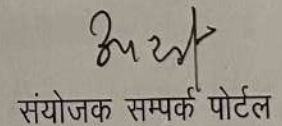 संयोजक सम्पर्क पोर्टल